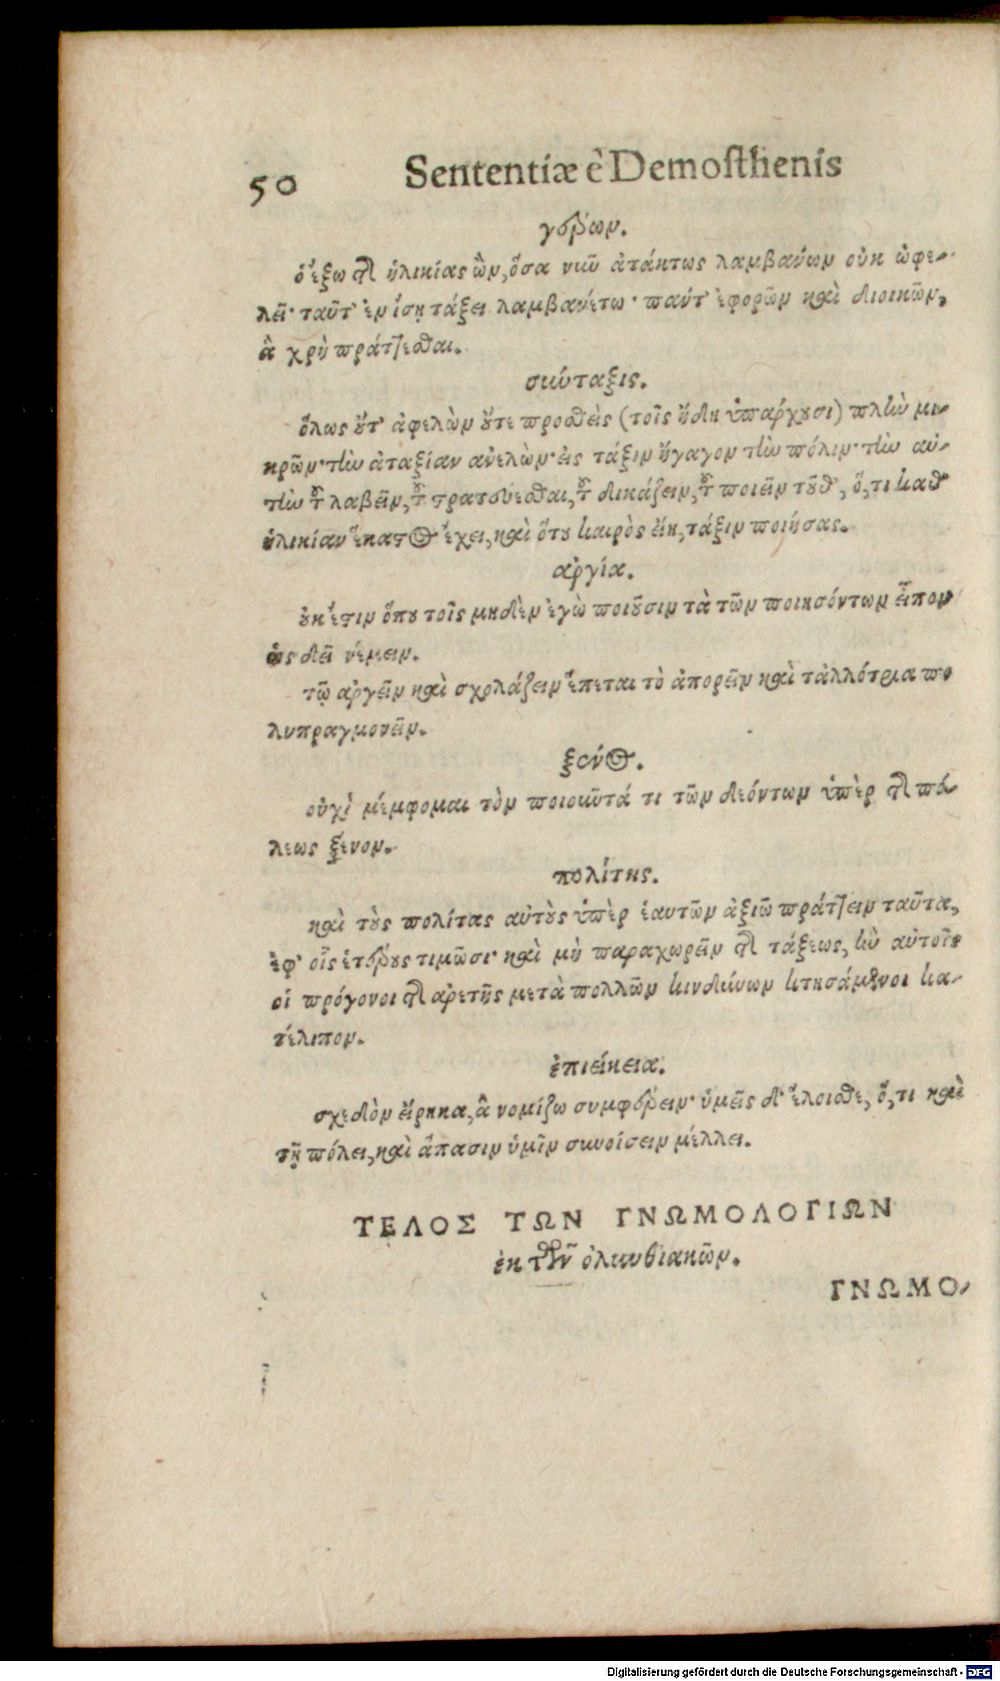 50 Sententiæ è Demosthenis
γέρων.
ὁ ἔξω τῆς ἡλικίας ὢν, ὅσα νῦν ἀτάκτως λαμβάνων οὐκ ὠφε-
λεῖ· ταῦτ' ἐν ἴσῃ τάξει λαμβανέτω· πάντ' ἐφορῶν καὶ διοικῶν,
ἃ χρὴ πράττεσθαι.
σύνταξις.
ὅλως οὔτ' ἀφελὼν οὔτε προσθεὶς (τοῖς ἤδη ὑπάρχουσι) πλὴν μι-
κρῶν· τὴν ἀταξίαν ἀνελὼν· εἰς τάξιν ἤγαγον τὴν πόλιν· τὴν αὐ-
τὴν τοῦ λαβεῖν, τοῦ στρατεύεσθαι, τοῦ δικάζειν, τοῦ ποιεῖν τοῦθ', ὅ, τι καθ'
ἡλικίαν ἕκαστος ἔχει, καὶ ὅτου καιρὸς εἴη, τάξιν ποιήσας.
ἀργία.
οὐκ ἔστιν ὅπου τοῖς μηδὲν ἐγὼ ποιοῦσιν τὰ τῶν ποιησόντων εἶπον
ὡς δεῖ νέμειν.
τῷ ἀργεῖν καὶ σχολάζειν ἕπεται τὸ ἀπορεῖν καὶ τἀλλότρια πο
λυπραγμονεῖν.
ξένος.
οὐχὶ μέμφομαι τὸν ποιοῦντά τι τῶν δεόντων ὑπὲρ τῆς πό-
λεως ξένον.
πολίτης.
καὶ τοὺς πολίτας αὐτοὺς ὑπὲρ ἑαυτῶν ἀξιῶ πράττειν ταῦτα,
ἐφ' οἷς ἑτέρους τιμῶσι· καὶ μὴ παραχωρεῖν τῆς τάξεως, ἣν αὐτοῖς
οἱ πρόγονοι τῆς ἀρετῆς μετὰ πολλῶν κινδύνων κτησάμενοι κα-
τέλιπον.
ἐπιείκεια.
σχεδὸν εἴρηκα, ἃ νομίζω συμφέρειν· ὑμεῖς δ' ἕλοισθε, ὅ, τι καὶ
τῇ πόλει, καὶ ἅπασιν ὑμῖν συνοίσειν μέλλει.
ΤΕΛΟΣ ΤΩΝ ΓΝΩΜΟΛΟΓΙΩΝ
ἐκ τῶν ὀλυνθιακῶν.
ΓΝΩΜΟ-
Digitalisierung gefördert durch die Deutsche Forschungsgemeinschaft - DFG